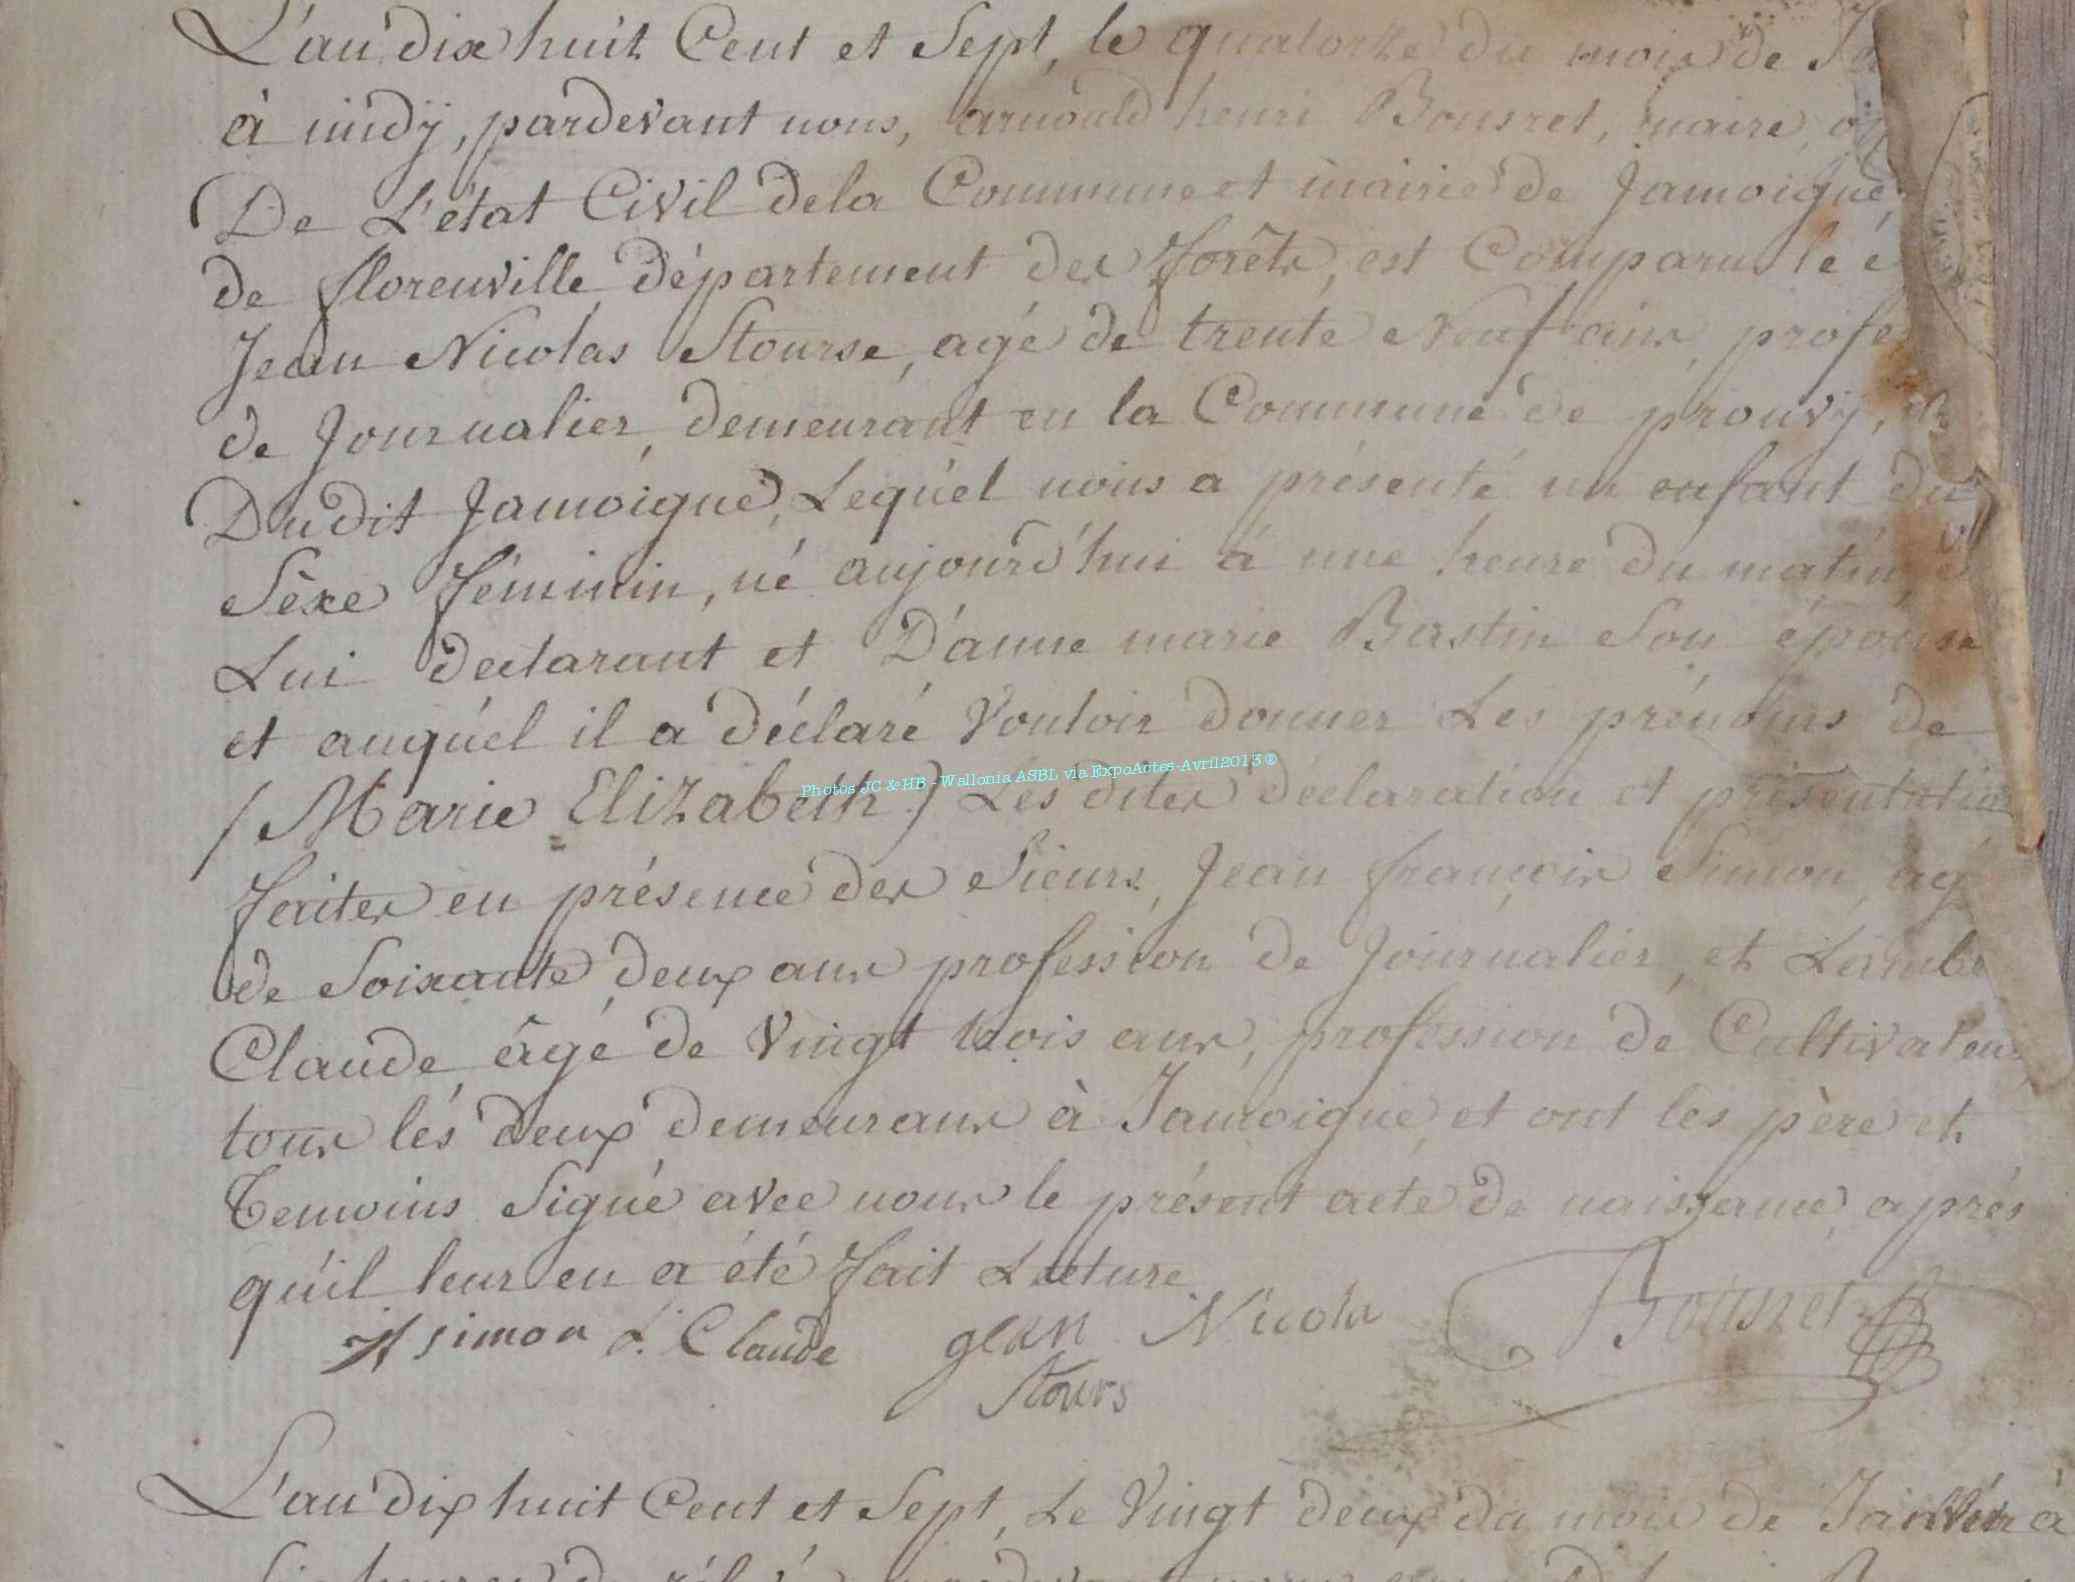 L'an dix huit Cent et Sept, le quatorze du mois de Ja
à midÿ, pardevant nous, arnould henri Bousret, maire, of
De L'état Civil dela Commune et mairie de Jamoigne,
de florenville, département des forêts, est Comparu le c
Jean Nicolas Stourse, agé de trente Neuf ans, profes
de Journalier, demeurant en la Commune de prouvÿ,
Dudit Jamoigne, Lequ'el nous a présenté un enfant du
Sèxe féminin, né aujourd'hui à une heure du matin, d
Lui declarant et D'anne marie Bastin Son épouse
et auqu'el il a déclaré Vouloir donner Les prénoms de
(Marie Elizabeth) Les dites déclaration et présentation
faites en présence des Sieurs, Jean françois Simon, agé
de Soixante deux ans profession de Journalier, et Lambe
Claude, âgé de Vingt trois ans, profession de Cultivateur,
tous lés deux demeurans à Jamoigne, et ont les père et
Temoins Signé avec nous le présent acte de naissance, aprés
qu'il leur en a été fait Lecture.
Jf simon L. Claude jean Nicola Bousret
Stours
L'an dix huit Cent et Sept, Le Vingt deux du mois de Janvier à
Photos JC & HB - Wallonia ASBL via ExpoActes-Avril2013 ®